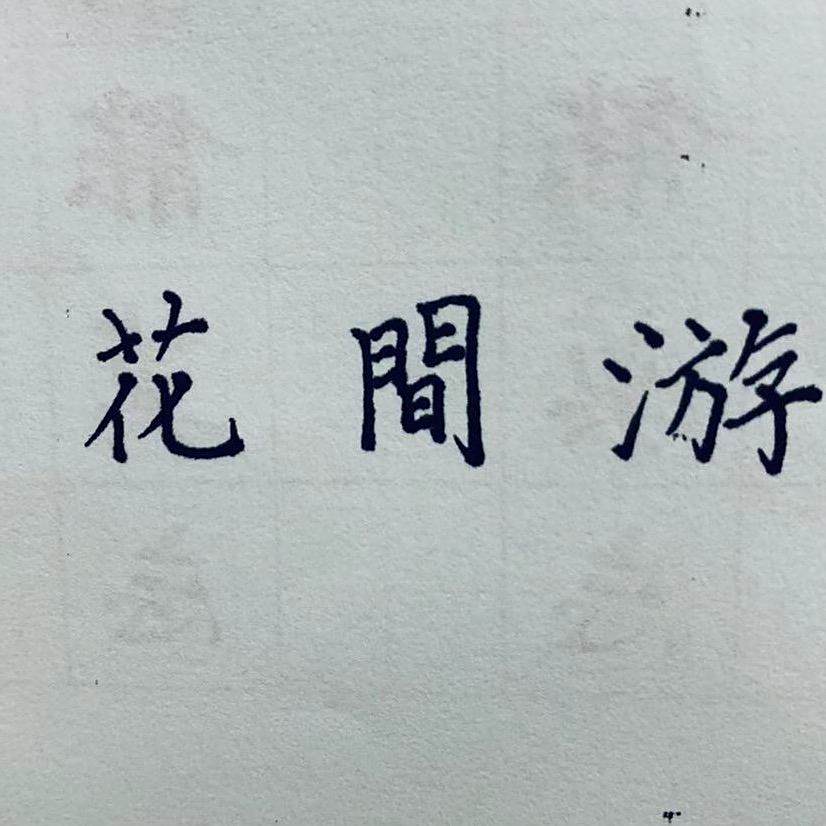 花間游